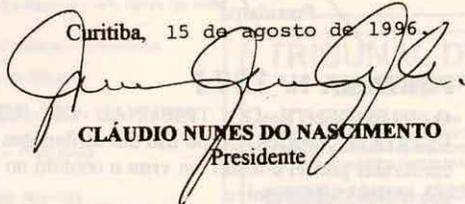 Curitiba, 15 de agosto de 1996.
CLÁUDIO NUNES DO NASCIMENTO
Presidente